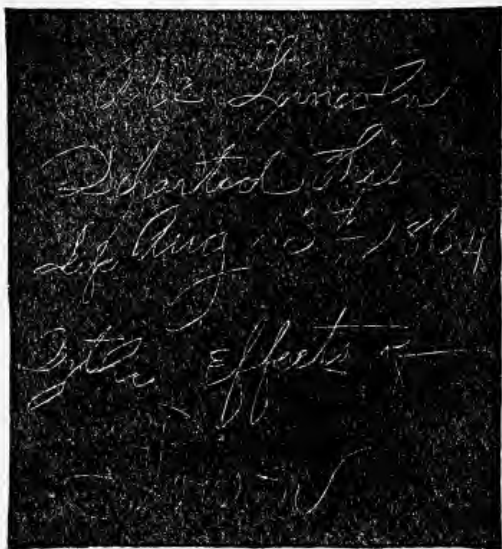 Abe Lincoln
Departed this
Life Aug 13th-1864
By the Effects of